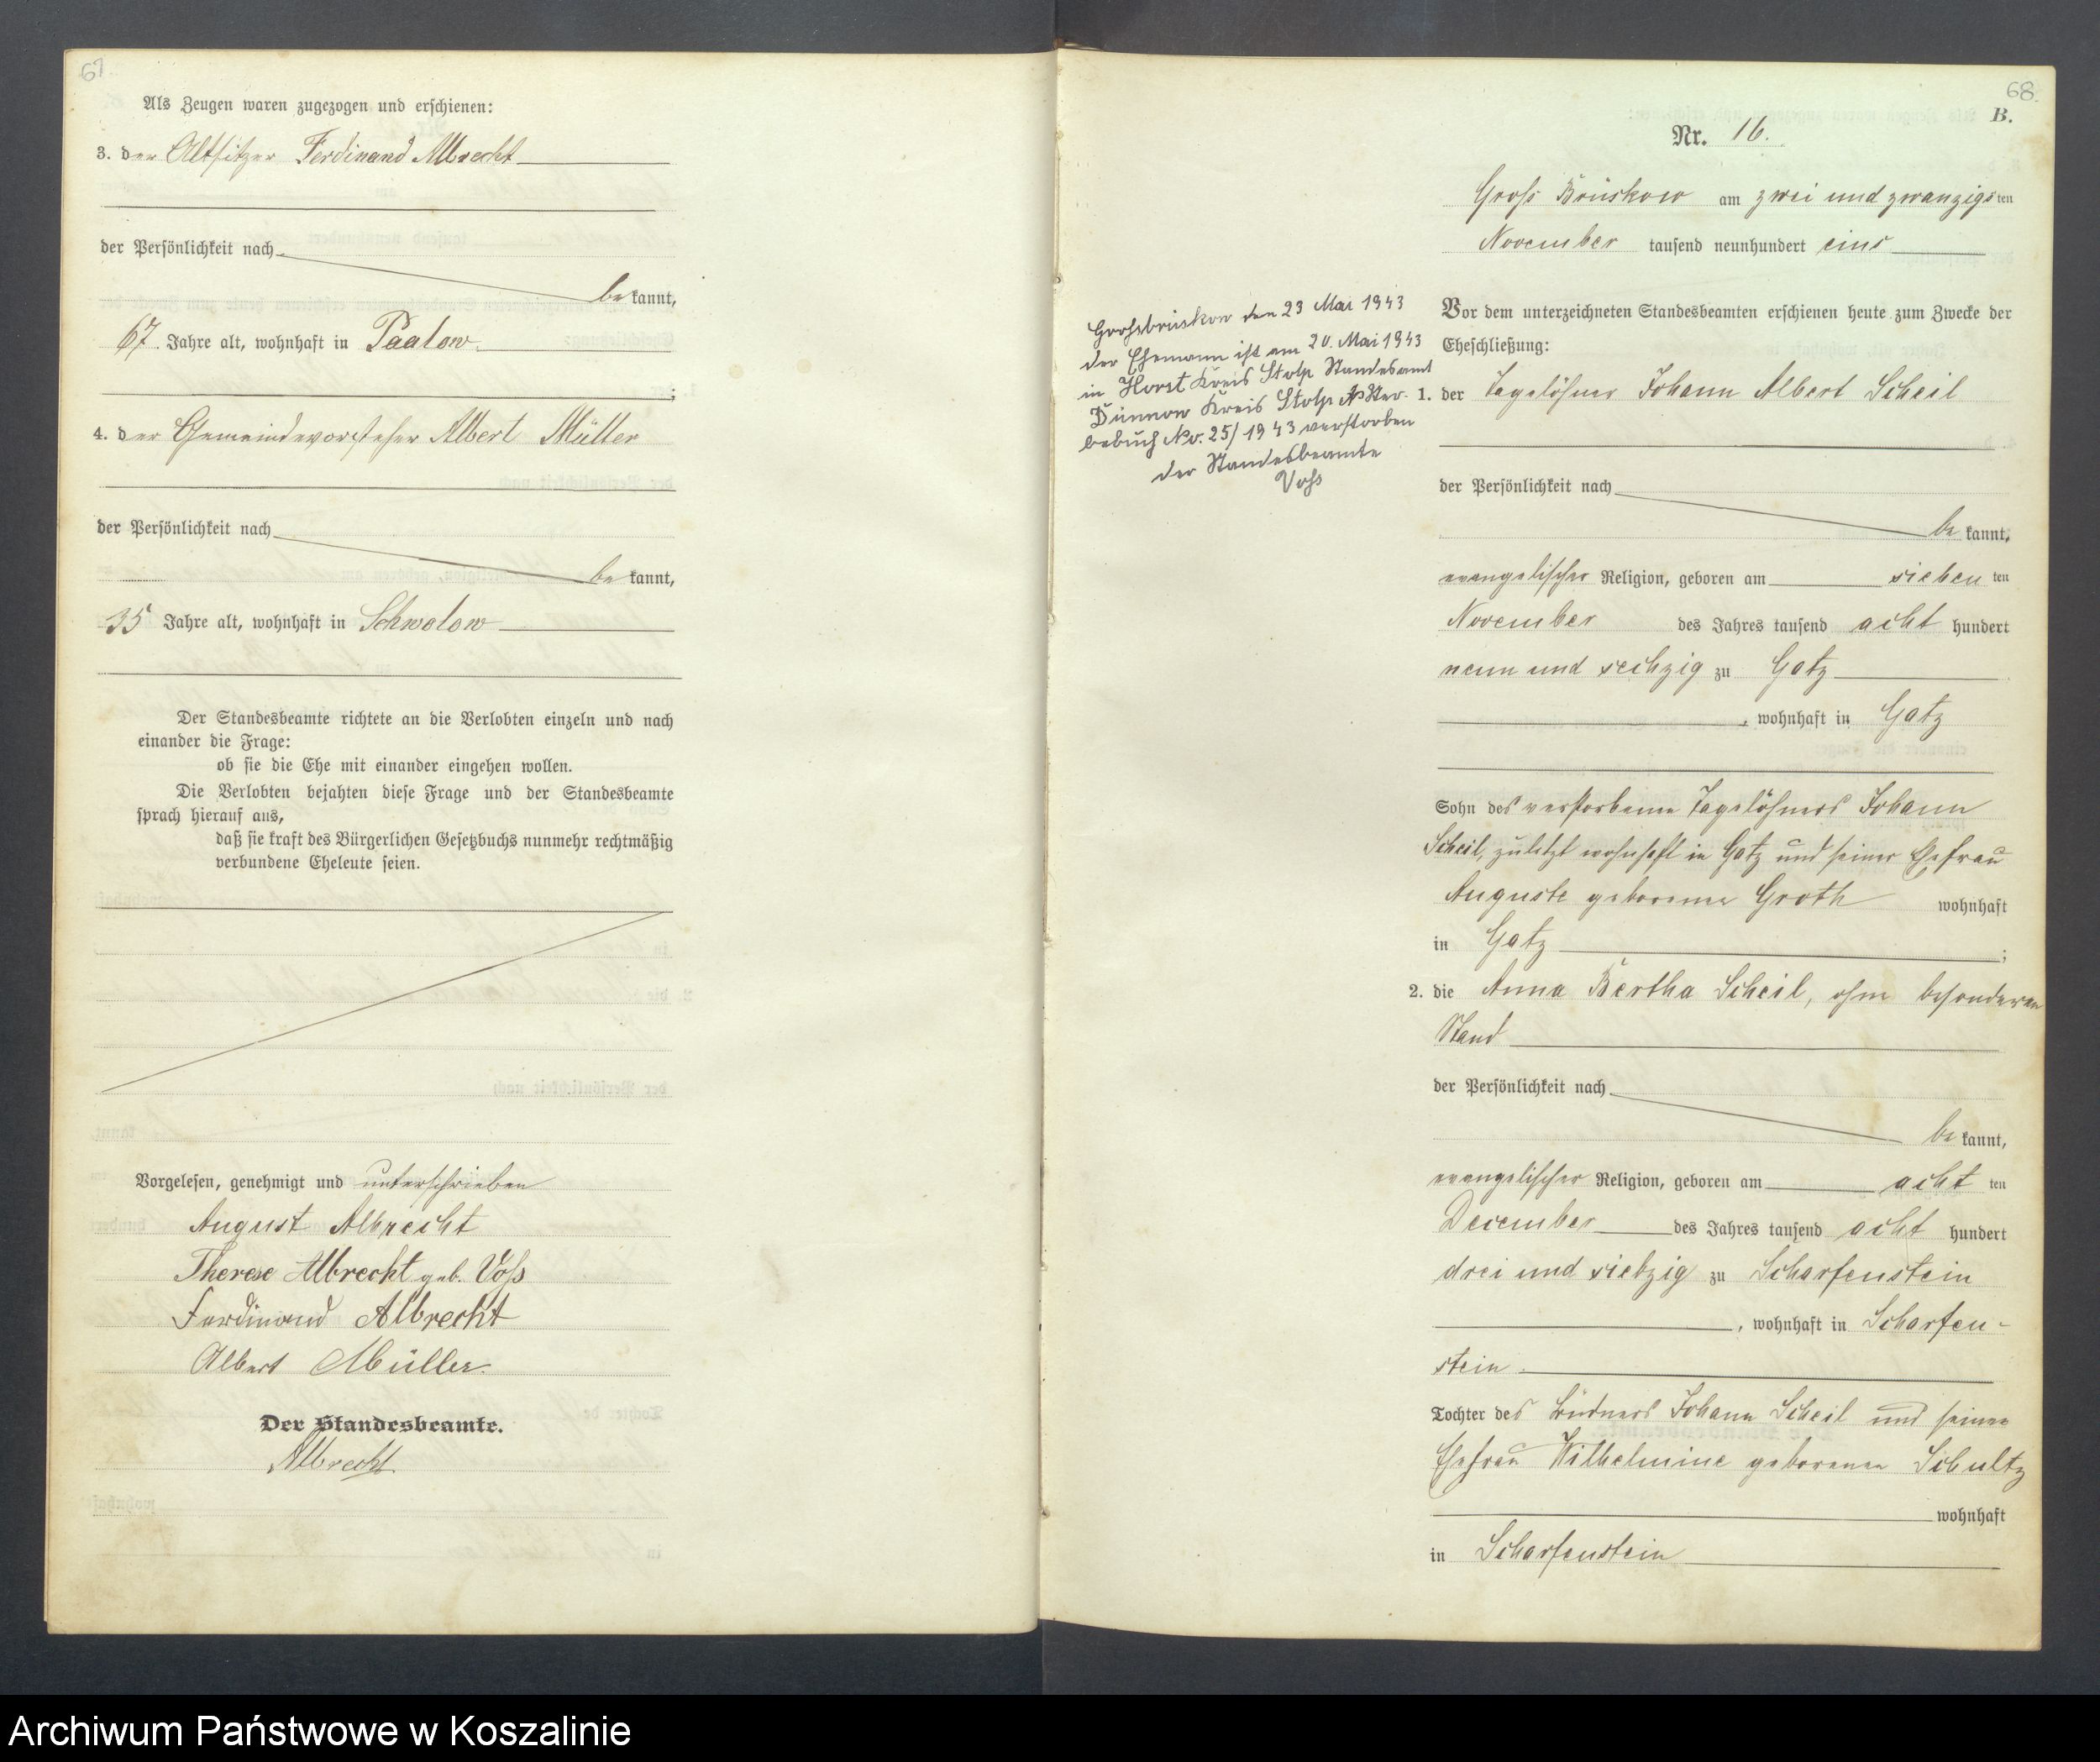 67.
Als Zeugen waren zugezogen und erschienen:
3. der Altsitzer Ferdinand Albrecht
der Persönlichkeit nach
bekannt,
67. Jahre alt, wohnhaft in Paalow
;
4. der Gemeindevorsteher Albert Müller
der Persönlichkeit nach
bekannt,
35 Jahre alt, wohnhaft in Schwolow
Der Standesbeamte richtete an die Verlobten einzeln und nach
einander die Frage:
ob sie die Ehe mit einander eingehen wollen.
Die Verlobten bejahten diese Frage und der Standesbeamte
sprach hierauf aus,
daß sie kraft des Bürgerlichen Gesetzbuchs nunmehr rechtmäßig
verbundene Eheleute seien.
Vorgelesen, genehmigt und unterschrieben
August Albrecht
Therese Albrecht geb. Voß
Ferdinand Albrecht
Albert Müller.
Der Standesbeamte.
Albrecht
68.
B.
Nr. 16.
Groß Brüskow am zwei und zwanzigsten
November tausend neunhundert eins
Großbrüskow den 23 Mai 1943
der Ehemann ist am 20. Mai 1943
in Horst Kreis Stolp Standesamt
Dünnow Kreis Stolp Ster-
bebuch No. 25/1943 verstorben
der Standesbeamte
Voß
Vor dem unterzeichneten Standesbeamten erschienen heute zum Zwecke der
Eheschließung:
1. der Tagelöhner Johann Albert Scheil
der Persönlichkeit nach
bekannt,
evangelischer Religion, geboren am siebenten
November des Jahres tausend achthundert
neun und sechzig zu Gatz
, wohnhaft in Gatz
Sohn des verstorbenen Tagelöhners Johann
Scheil, zuletzt wohnhaft in Gatz und seiner Ehefrau
Auguste geborene Groth wohnhaft
in Gatz ;
2. die Anna Bertha Scheil, ohne besonderen
Stand
der Persönlichkeit nach
bekannt,
evangelischer Religion, geboren am achtten
December des Jahres tausend achthundert
drei und siebzig zu Scharfenstein
, wohnhaft in Scharfen-
stein
Tochter des Büdners Johann Scheil und seiner
Ehefrau Wilhelmine geborenen Schultz
wohnhaft
in Scharfenstein
Archiwum Państwowe w Koszalinie